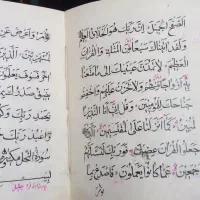 الصفح الجميل ان ربك هو الخلاق العليم
ولقد اتيناك سبعا من المثاني والقران
العظيم لا تمدن عينيك الى ما متعنا
به ازواجا منهم ولا تحزن عليهم واخفض
جناحك للمؤمنين وقل اني انا النذير
المبين كما انزلنا على المقتسمين الذين
جعلوا القران عضين فوربك لنسئلنهم
اجمعين عما كانوا يعملون فاصدع بما
تؤمر واعرض عن
الذين
اخر فسوف يعلمون
يضيق صدرك بما
بحمد ربك وكن
واعبد ربك حتى
سورة النحل مكية